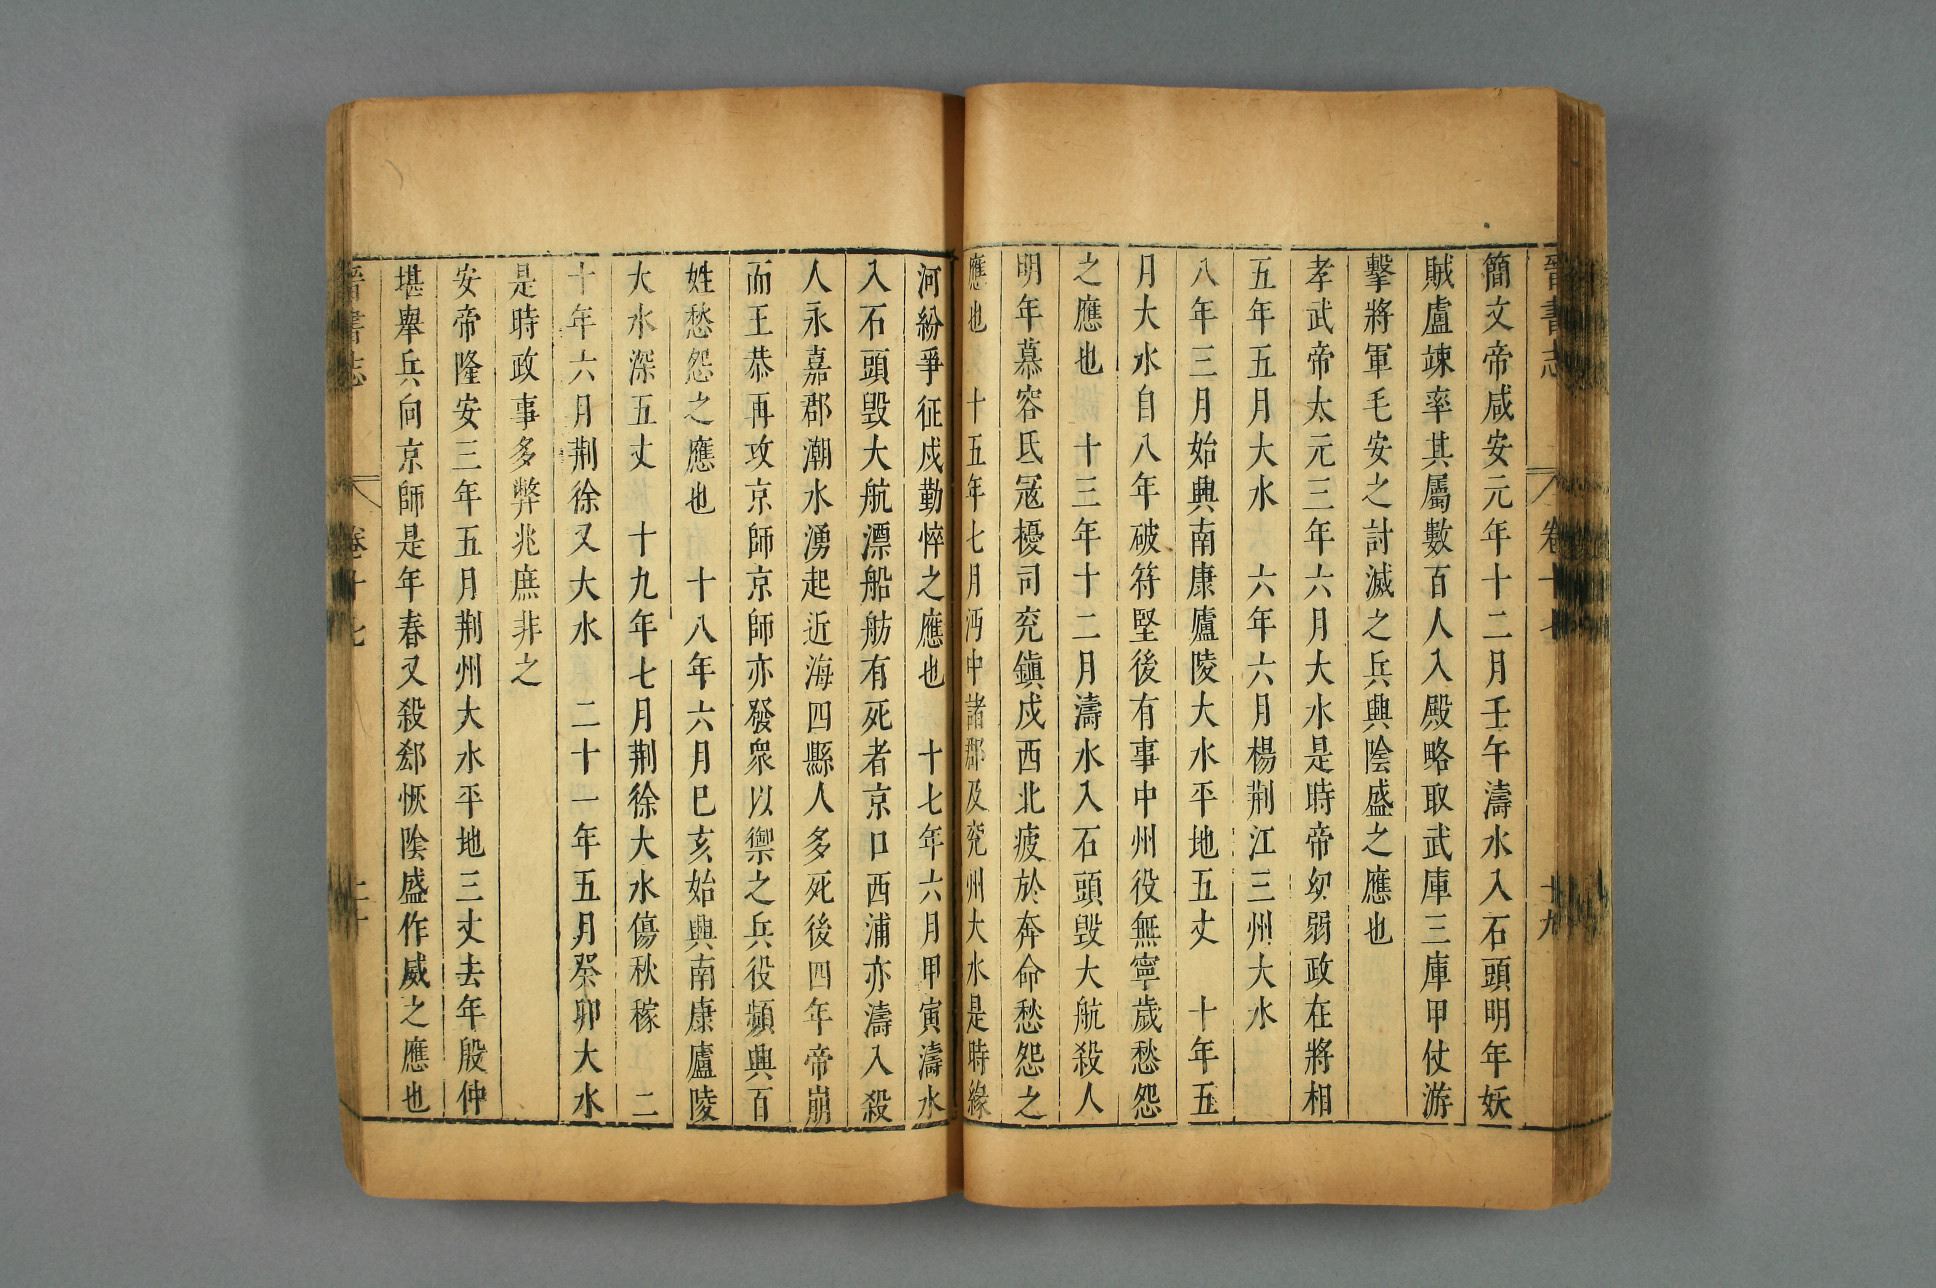 晉書志 卷十七 十九
簡文帝咸安元年十二月壬午濤水入石頭明年妖
賊盧竦率其屬數百人入殿略取武庫三庫甲仗游
擊將軍毛安之討滅之兵興陰盛之應也
孝武帝太元三年六月大水是時帝幼弱政在將相
五年五月大水 六年六月楊荆江三州大水
八年三月始興南康廬陵大水平地五丈 十年五
月大水自八年破苻堅後有事中州役無寧歲愁怨
之應也 十三年十二月濤水入石頭毁大航殺人
明年慕容氐寇擾司兖鎭戍西北疲於奔命愁怨之
應也 十五年七月沔中諸郡及兖州大水是時緣
河紛爭征戍勤悴之應也 十七年六月甲寅濤水
入石頭毁大航漂船舫有死者京口西浦亦濤入殺
人永嘉郡潮水湧起近海四縣人多死後四年帝崩
而王恭再攻京師京師亦發衆以禦之兵役頻興百
姓愁怨之應也 十八年六月巳亥始興南康廬陵
大水深五丈 十九年七月荆徐大水傷秋稼 二
十年六月荆徐又大水 二十一年五月癸卯大水
是時政事多弊兆庶非之
安帝隆安三年五月荆州大水平地三丈去年殷仲
堪舉兵向京師是年春又殺郄恢陰盛作威之應也
晉書志 卷十七 二十